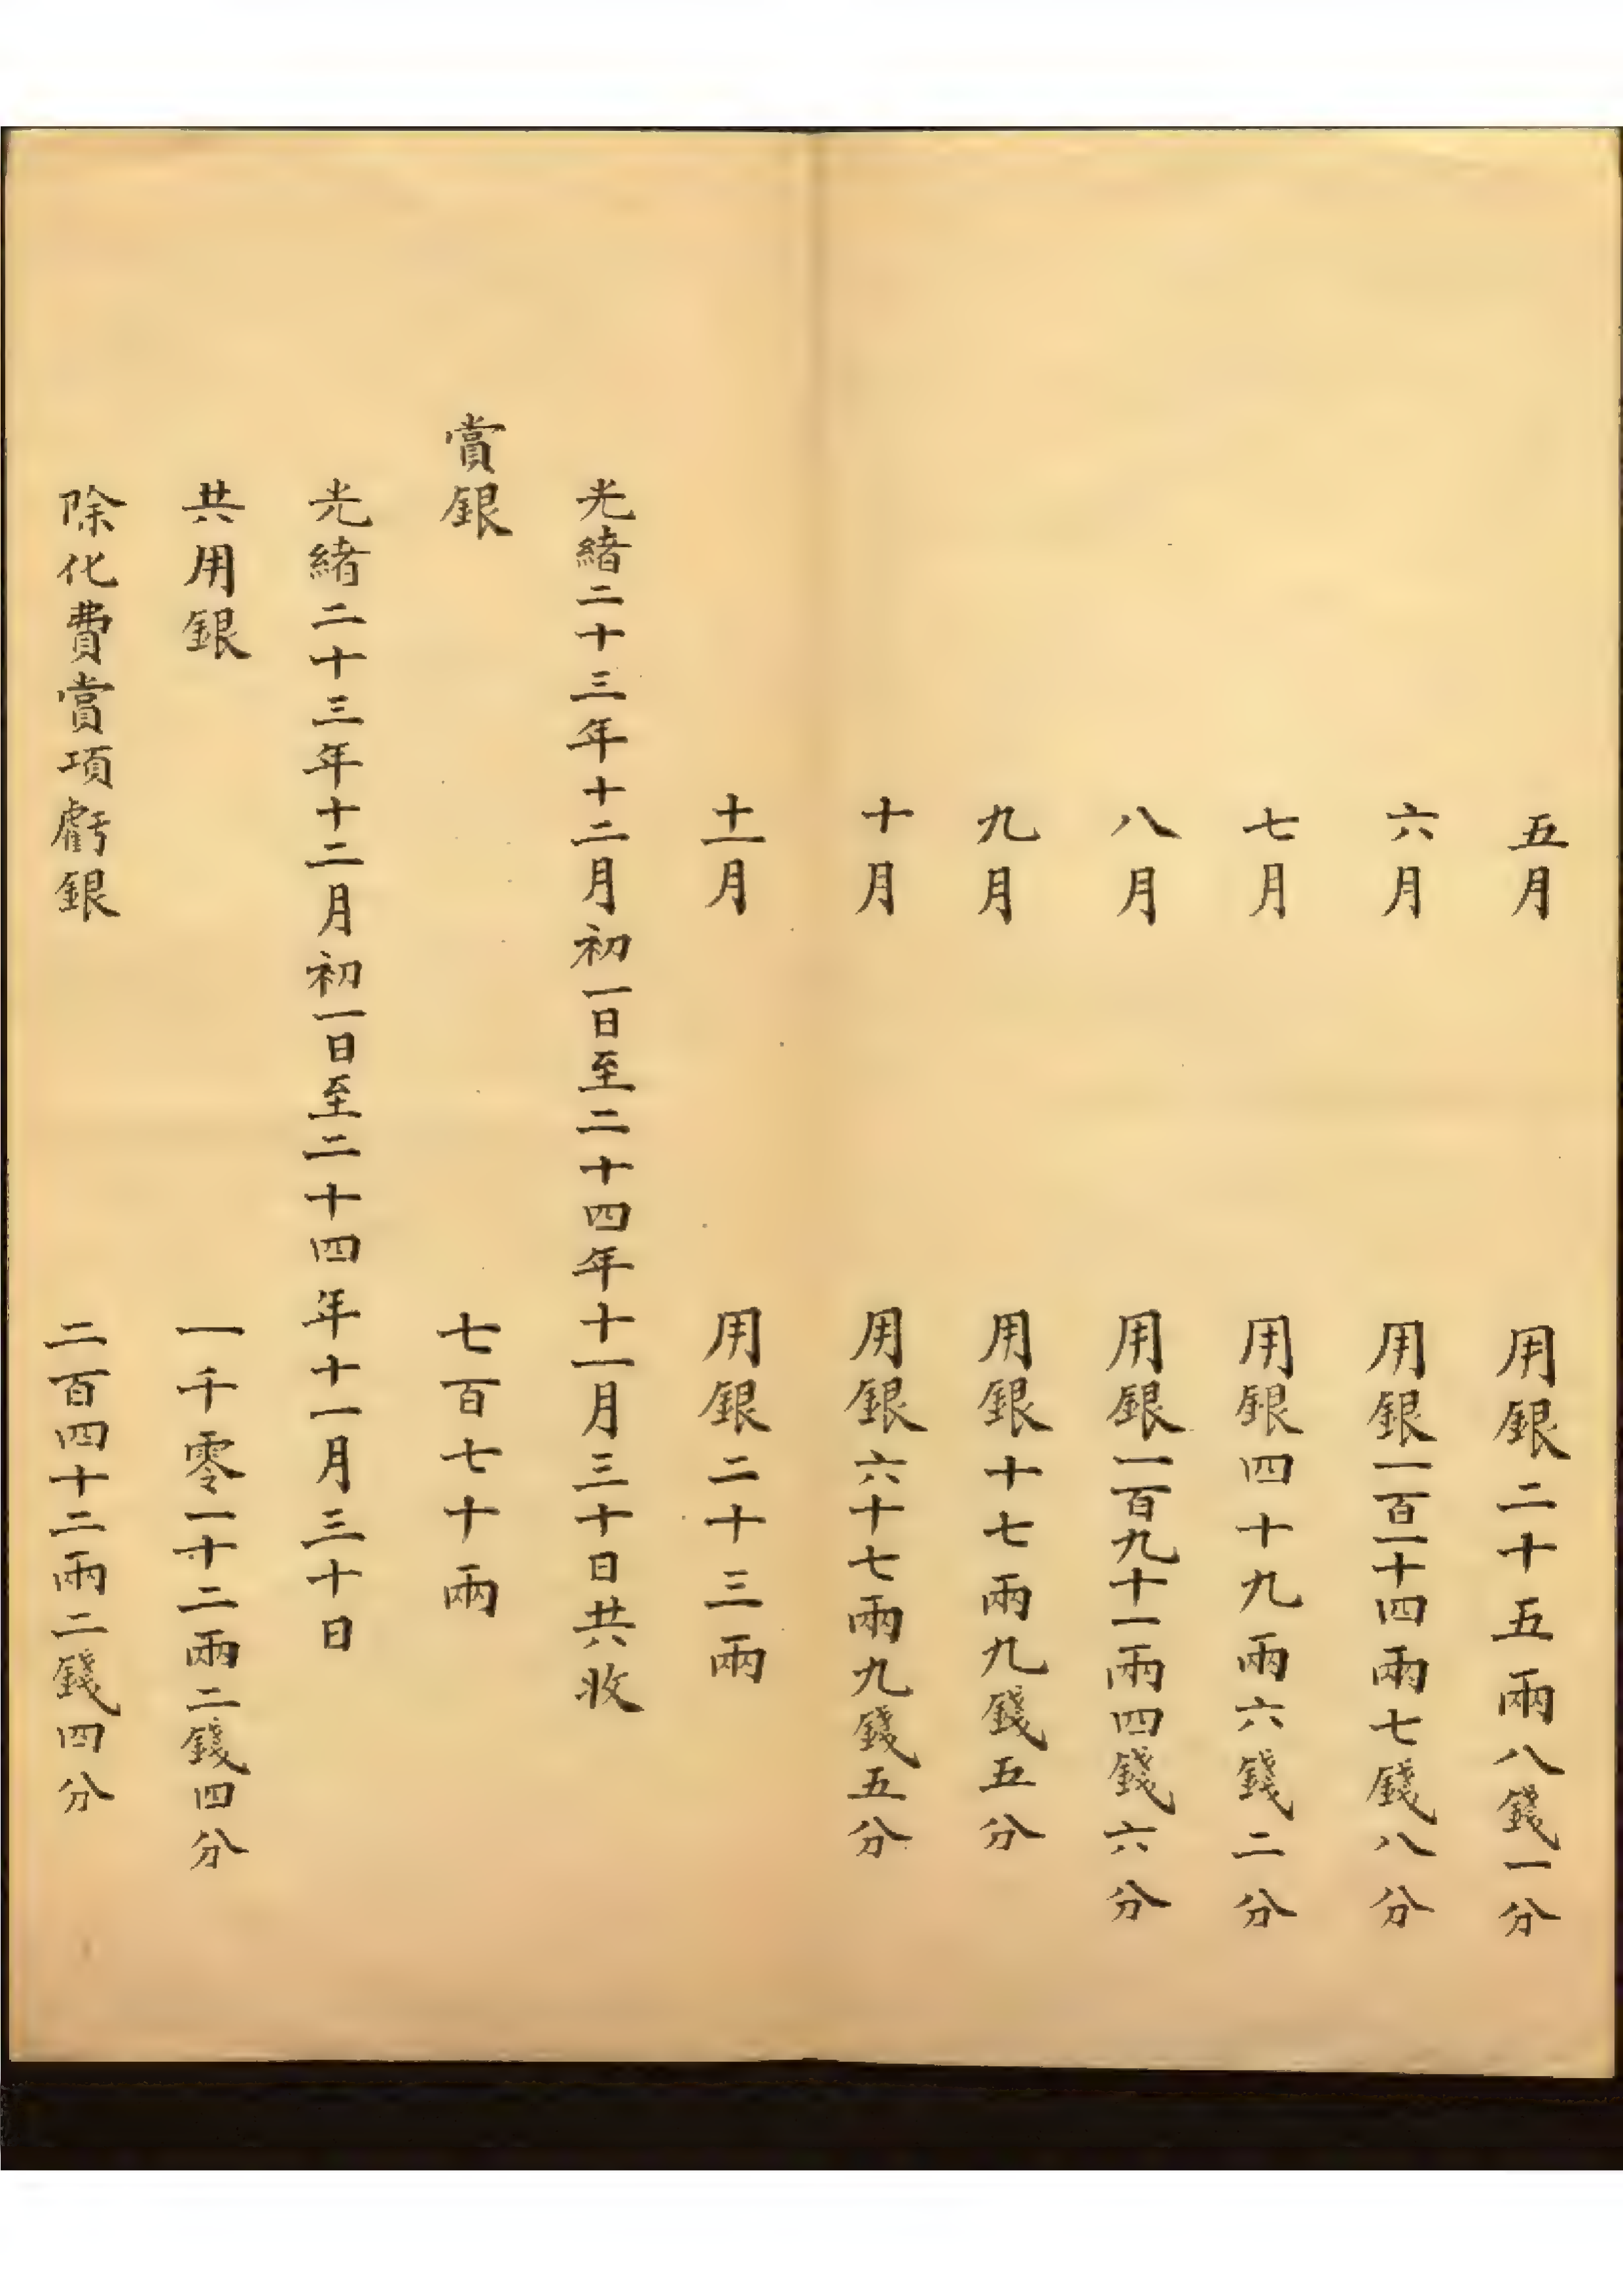 五月 用銀二十五兩八錢一分
六月 用銀一百一十四兩七錢八分
七月 用銀四十九兩六錢二分
八月 用銀一百九十一兩四錢六分
九月 用銀十七兩九錢五分
十月 用銀六十七兩九錢五分
十一月 用銀二十三兩
光緒二十三年十二月初一日至二十四年十一月三十日共收
賞銀 七百七十兩
光緒二十三年十二月初一日至二十四年十一月三十日
共用銀 一千零一十二兩二錢四分
除化費賞項虧銀 二百四十二兩二錢四分